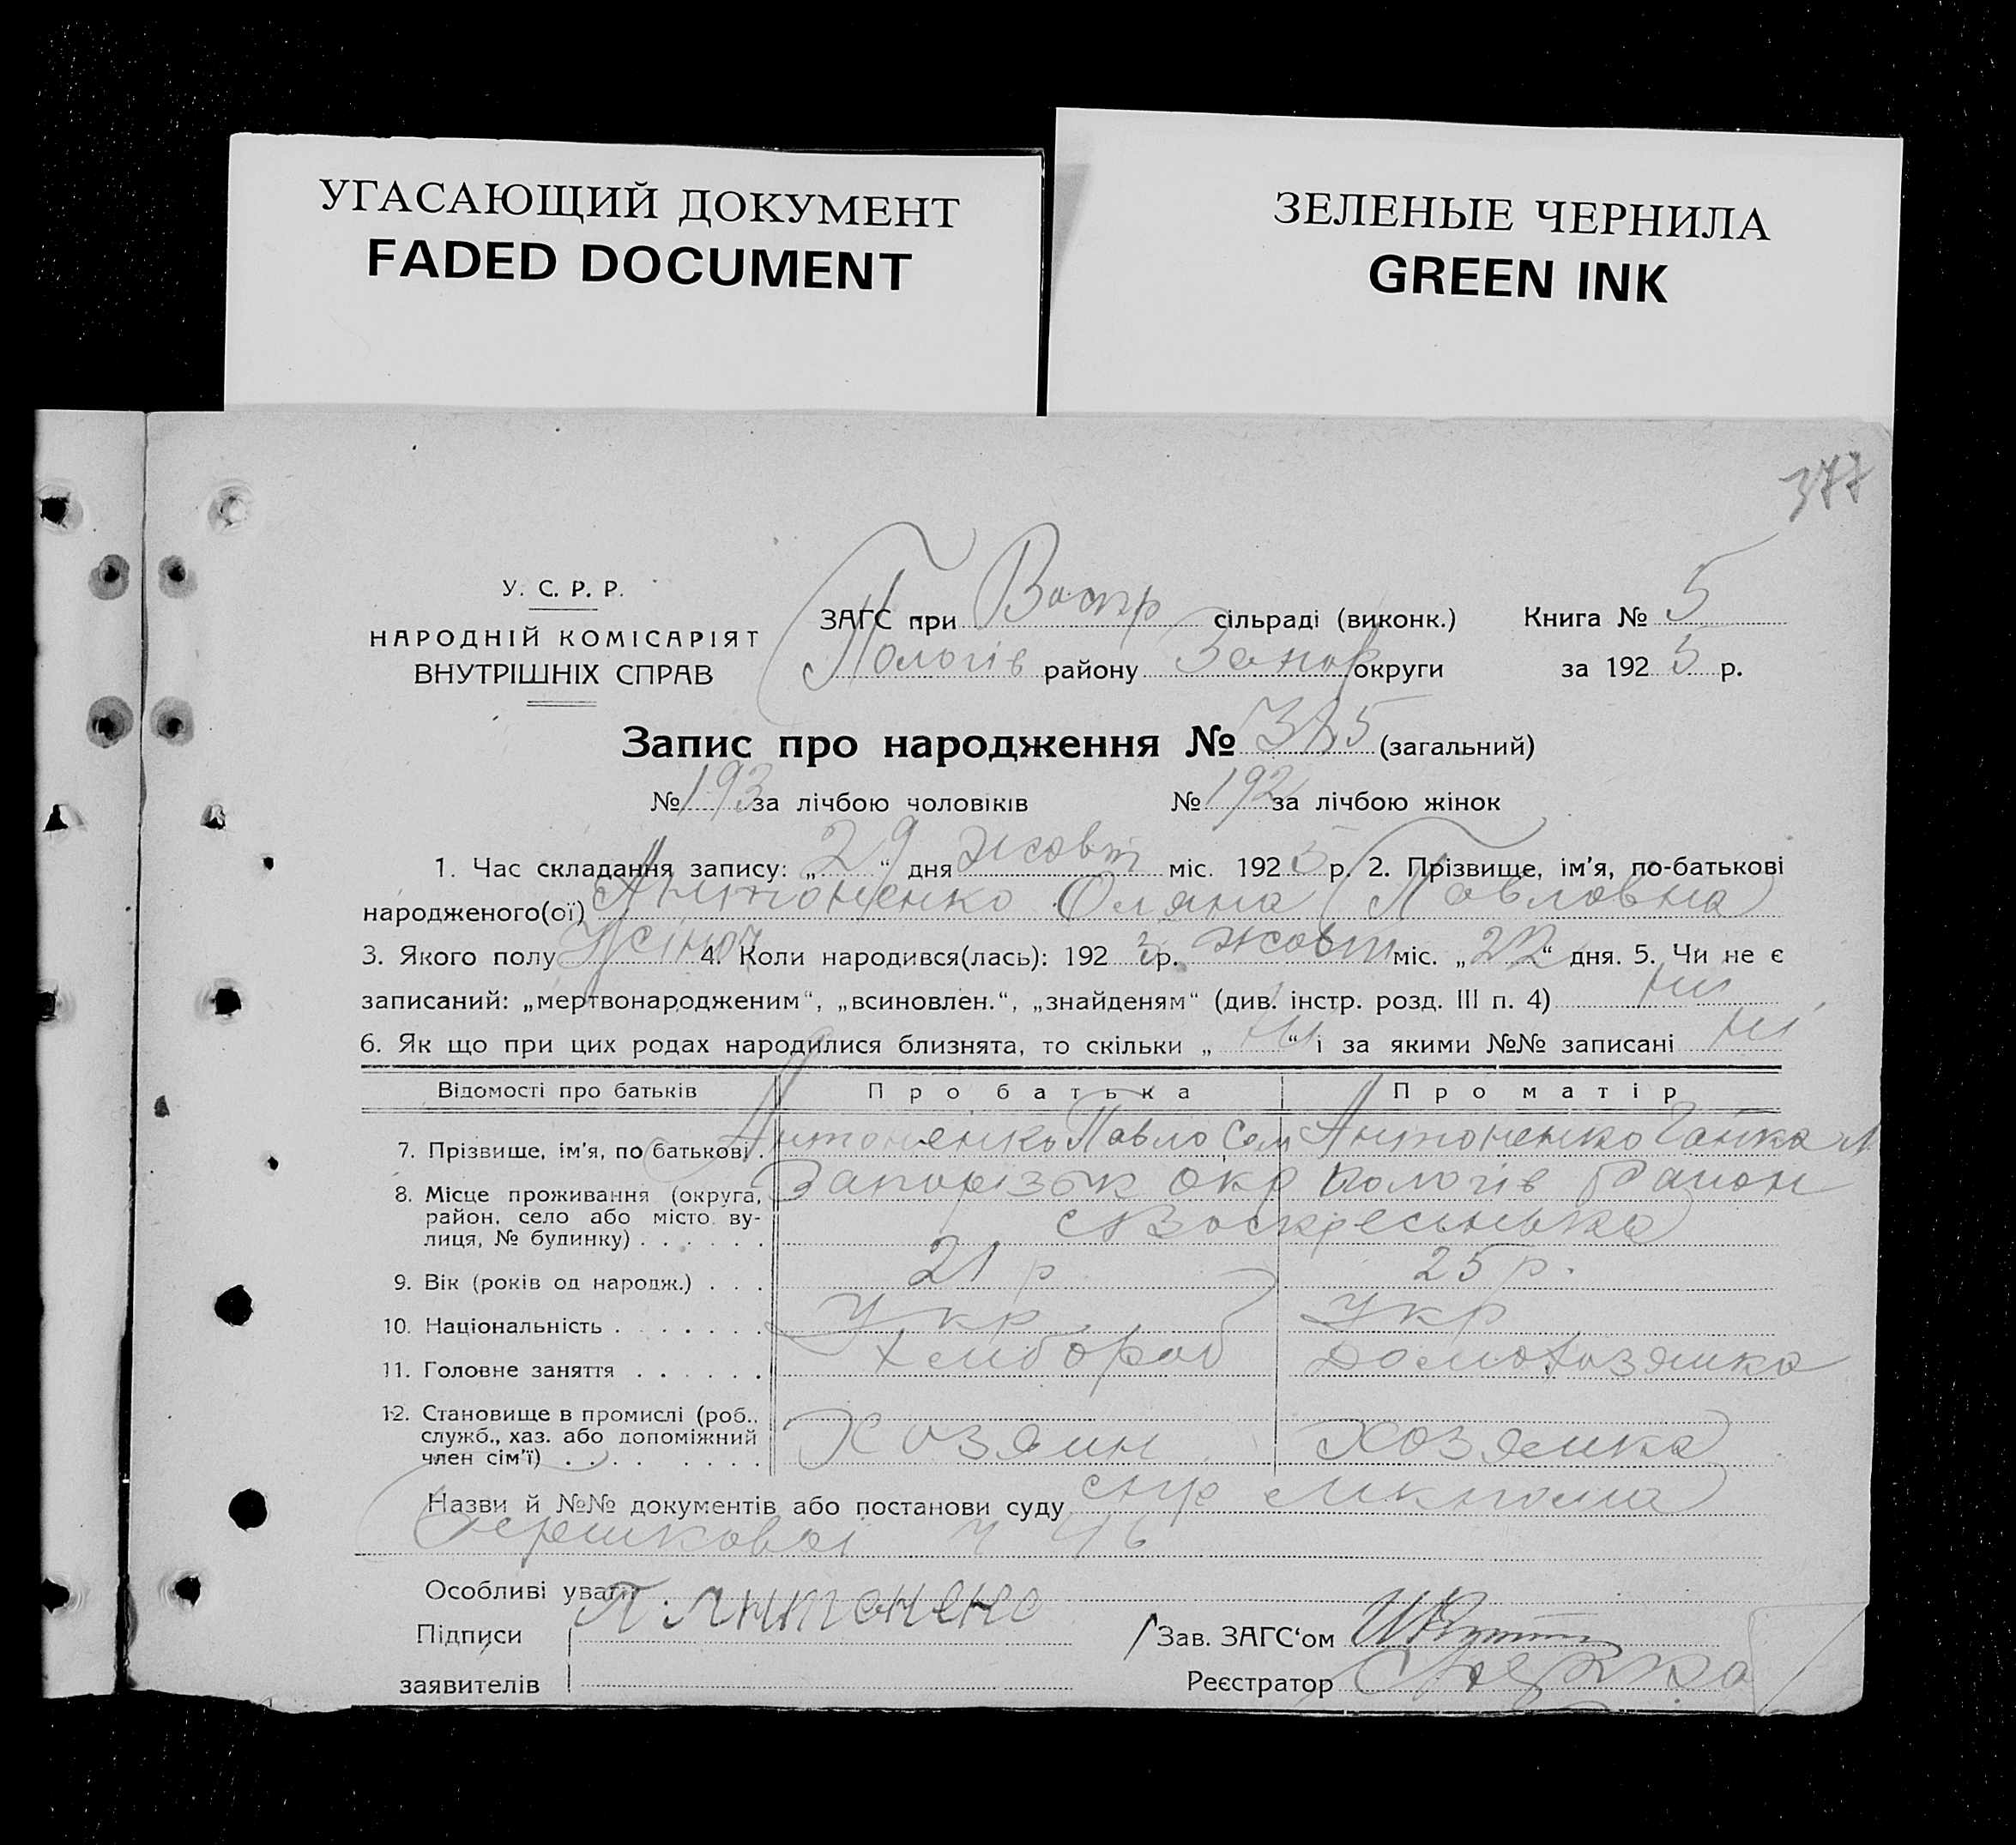 УГАСАЮЩИЙ ДОКУМЕНТ
FADED DOCUMENT
ЗЕЛЕНЫЕ ЧЕРНИЛА
GREEN INK
377
У. С. Р. Р.
НАРОДНІЙ КОМІСАРІЯТ
ВНУТРІШНІХ СПРАВ
ЗАГС при Воскр сільраді (виконк.) Книга № 5
Пологів району Запор округи за 1925 р.
Запис про народження № 385 (загальний)
№ 193 за лічбою чоловіків № 192 за лічбою жінок
1. Час складання запису: „29“ дня жовт міс. 1925 р. 2. Прізвище, ім'я, по-батькові
народженого(ої) Антоненко Оляна Павловна
3. Якого полу жіноч 4. Коли народився(лась): 192 р. жовт міс. „22“ дня. 5. Чи не є
записаний: „мертвонародженим“, „всиновлен.“, „знайденям“ (див. інстр. розд. III п. 4) ні
6. Як що при цих родах народилися близнята, то скільки „ні“ і за якими №№ записані ні
Відомості про батьків Про батька Про матір
7. Прізвище, ім'я, по батькові . Антоненко Павло Сем Антоненко Ганка
8. Місце проживання (округа, Запорізьк окр Пологів район
район, село або місто, ву- с Воскресенька
лиця, № будинку) . . . . . .
9. Вік (років од народж.) . . . 21 р 25 р.
10. Національність . . . . . . . Укр Укр
11. Головне заняття . . . . . . Хлибороб Домохозяика
12. Становище в промислі (роб.,
служб., хаз. або допоміжний Хозяин Хозяика
член сім'ї) . . . . . . . .
Назви й №№ документів або постанови суду
46
Особливі уваги
Підписи П Антонено Зав. ЗАГС'ом
заявителів Реєстратор